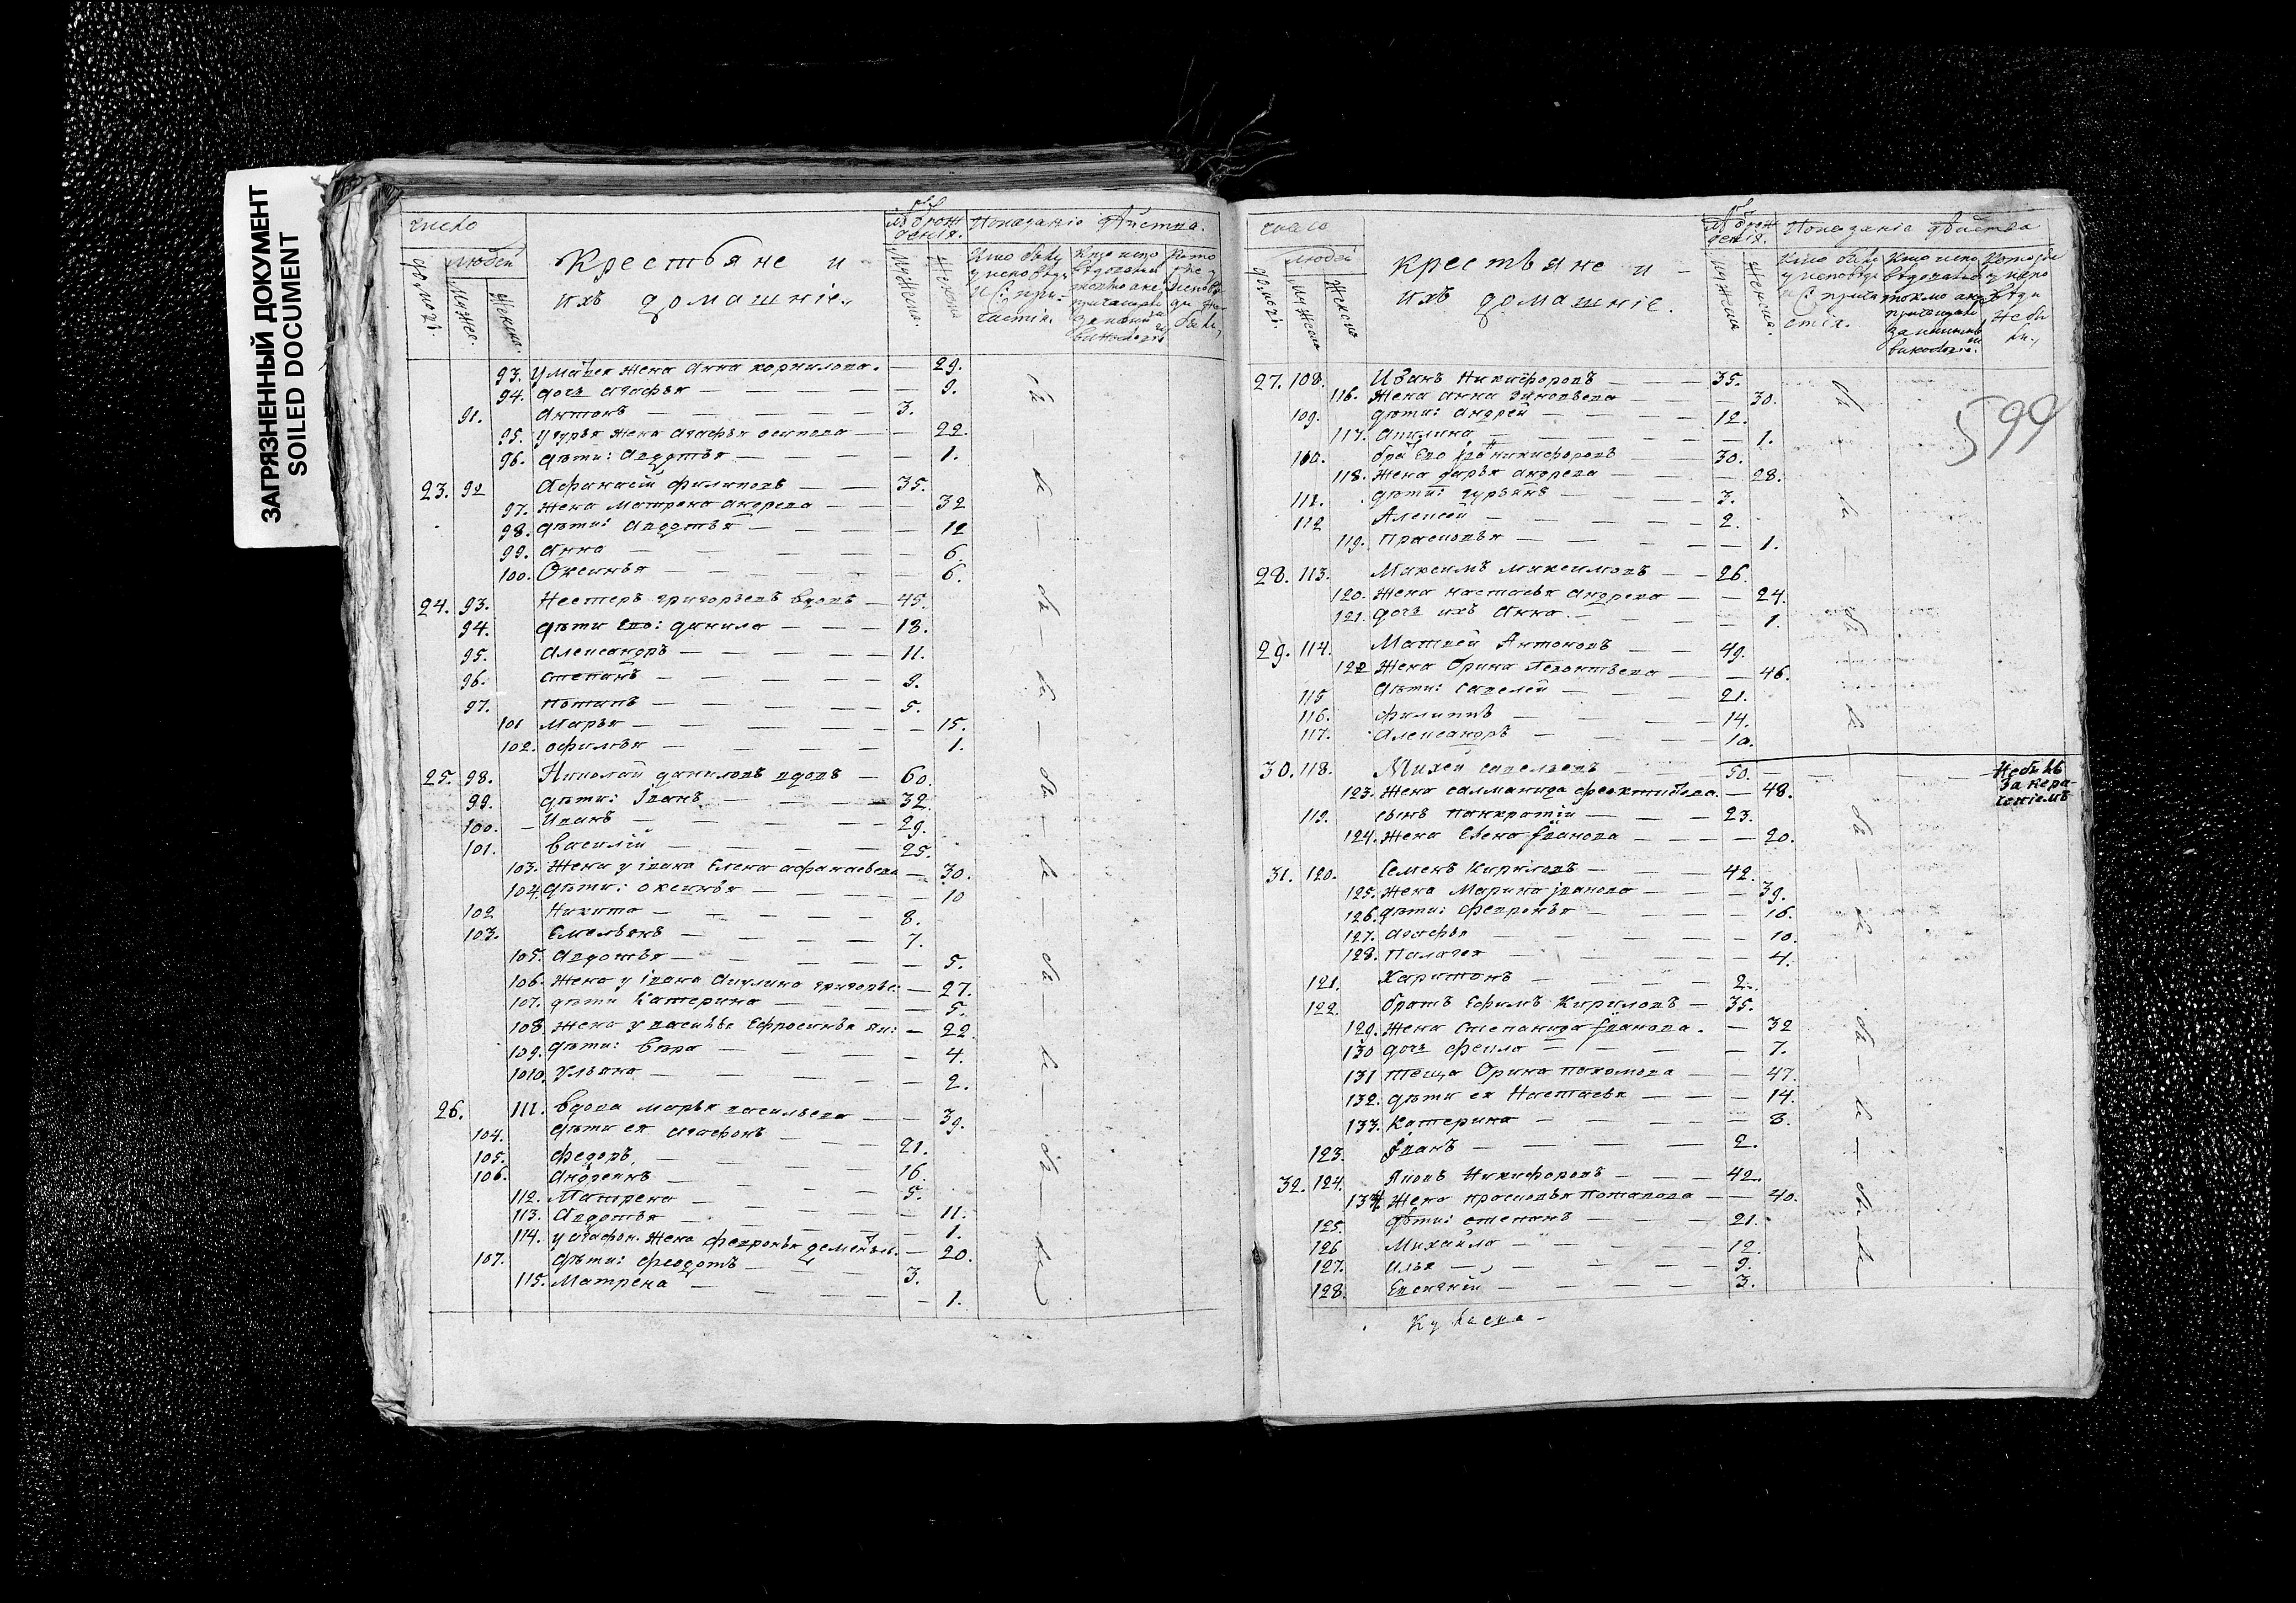 ЗАГРЯЗНЕННЫЙ ДОКУМЕНТ
SOILED DOCUMENT
число
людей
Крестьяне и
ихъ домашніе.
Показаніе дѣйства.
93. жена Анна корнилова. — 29.
94. дочь агафья — 9.
91. Антонъ — 3.
95. у гурья жена агафья осипова — 22.
96. дѣти: авдотья — 1.
23. 92 Афанасій филиповъ — 35.
97. жена матрена андреева — 32
98. дѣти: авдотья — 12
99. анна — 6.
100. Оксинья — 6.
24. 93. Нестеръ григорьевъ вдовъ — 45.
94. дѣти его: данило — 18.
95. александръ — 11.
96. степанъ — 9.
97. потапъ — 5.
101 марья — 15.
102. офимья — 1.
25. 98. Николай даниловъ вдовъ — 60.
99. дѣти: Iванъ — 32.
100. Иванъ — 29.
101. Василій — 25.
103. жена у iвана Елена афанасьева — 30.
104. дѣти: оксинья — 10
102 Никита — 8.
103. Емельянъ — 7.
105. авдотья — 5.
106. жена у iвана акулина григорье: — 27.
107. дѣти катерина — 5.
108. жена у василья Ефросинья як: — 22.
109. дѣти: вера — 4.
1010. ульяна — 2.
26. 111. вдова марья васильева — 39.
104. дѣти ея агафонъ — 21.
105. федоръ — 16.
106. андреянъ — 5.
112. матрена — 11.
113. авдотья — 1.
114. у агафон. жена февронья — 20.
107. дѣти: феодотъ — 3.
115. матрена — 1.
число
людей
крестьяне и
ихъ домашніе.
Показаніе дѣйства
599
27. 108. Иванъ Никифоровъ — 35.
116. жена анна — 30.
109. дѣти: андрей — 12.
117. акилина — 1.
100. бра его никифоровъ — 30.
118. жена дарья андреева — 28.
111. дѣти: гурьянъ — 3.
112 Алексей — 2.
119. Прасковья — 1.
28. 113. Максимъ максимовъ — 26.
120. жена настасья андреева — 24.
121. дочь ихъ анна — 1.
29. 114. Матвей Антоновъ — 49.
122 жена Орина Леонтьева — 46.
115 дѣти: савелей — 21.
116. филиппъ — 14.
117. александръ — 10.
30. 118. Михей савельевъ — 50. — Небылъ
за нера-
ченіемъ
123. жена саламанида феоктистова. — 48.
119. сынъ панкратій — 23.
124. жена Елена Iванова — 20.
31. 120. Семенъ Кириловъ — 42.
125. жена Марина iванова — 39.
126. дѣти: февронья — 16.
127. агафья — 10.
128. палагея — 4.
121. харитонъ — 2.
122. братъ Ефимъ Кириловъ — 35.
129. жена степанида Iванова. — 32
130 дочь фекла — 7.
131 теща Орина пахомова — 47.
132. дѣти ея Настасья — 14.
133. катерина — 8.
123. Iванъ — 2.
32. 124. Яковъ Никифоровъ — 42.
134. жена прасковья потапова — 40.
125. дѣти: степанъ — 21.
126 Михайло — 12.
127. илья — 9.
128. Евсигній — 3.